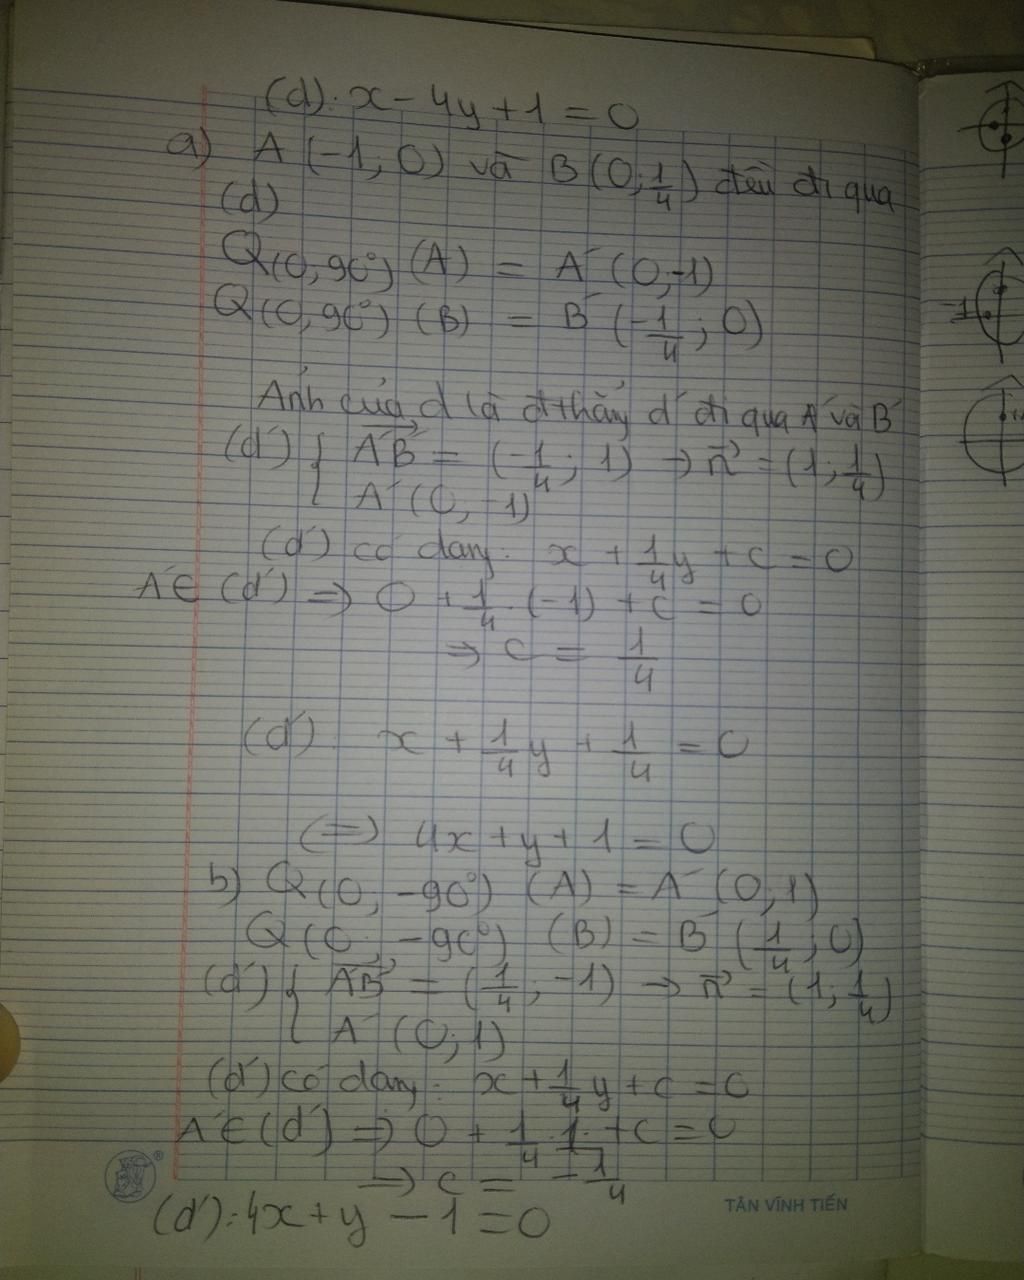 (d): x - 4y + 1 = 0
a) A (-1; 0) và B (0; 1/4) đều đi qua
(d)
Q(O, 90°) (A) = A' (0; -1)
Q(O, 90°) (B) = B' (-1/4; 0)
Ảnh của d là đthẳng d' đi qua A' và B'
(d') { A'B' = (-1/4; 1) → n = (1; 1/4)
A' (0, -1)
(d') có dạng: x + 1/4 y + c = 0
A' ∈ (d') ⇒ 0 + 1/4 . (-1) + c = 0
⇒ c = 1/4
(d'): x + 1/4 y + 1/4 = 0
(=) 4x + y + 1 = 0
b) Q(O, -90°) (A) = A' (0; 1)
Q(O; -90°) (B) = B' (1/4; 0)
(d') { A'B' = (1/4; -1) → n = (1; 1/4)
A' (0; 1)
(d') có dạng: x + 1/4 y + c = 0
A' ∈ (d') ⇒ 0 + 1/4 . 1 + c = 0
⇒ c = -1/4
(d'): 4x + y - 1 = 0
TÂN VĨNH TIẾN
-1